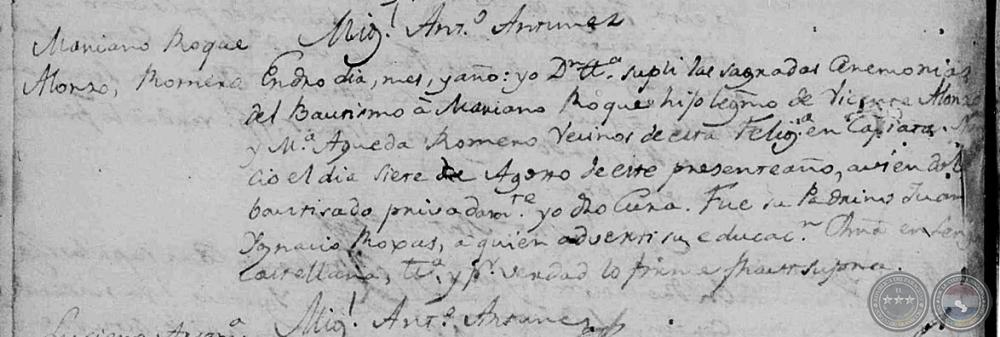 Mig.l Ant.o Antunez
Mariano Roque
Alonzo, Romero
En dho dia, mes, y año: yo D.n tt.a supli las sagradas Ceremonias
del Bautismo â Mariano Roque hijo legmo de Vicente Alonzo
y M.a Agueda Romero Vecinos de esta Felig.a en Capiata. Na
cio el dia siete de Agosto de este presente año, aviendolo
bautisado privadam.te yo dho Cura. Fue su Padrino Juan
Ygnacio Roxas, a quien adverti su educac.n Chna en lengua
Castellana, tt.a y p.r verdad lo firme fha ut supra.
Mig.l Ant.o Antunez